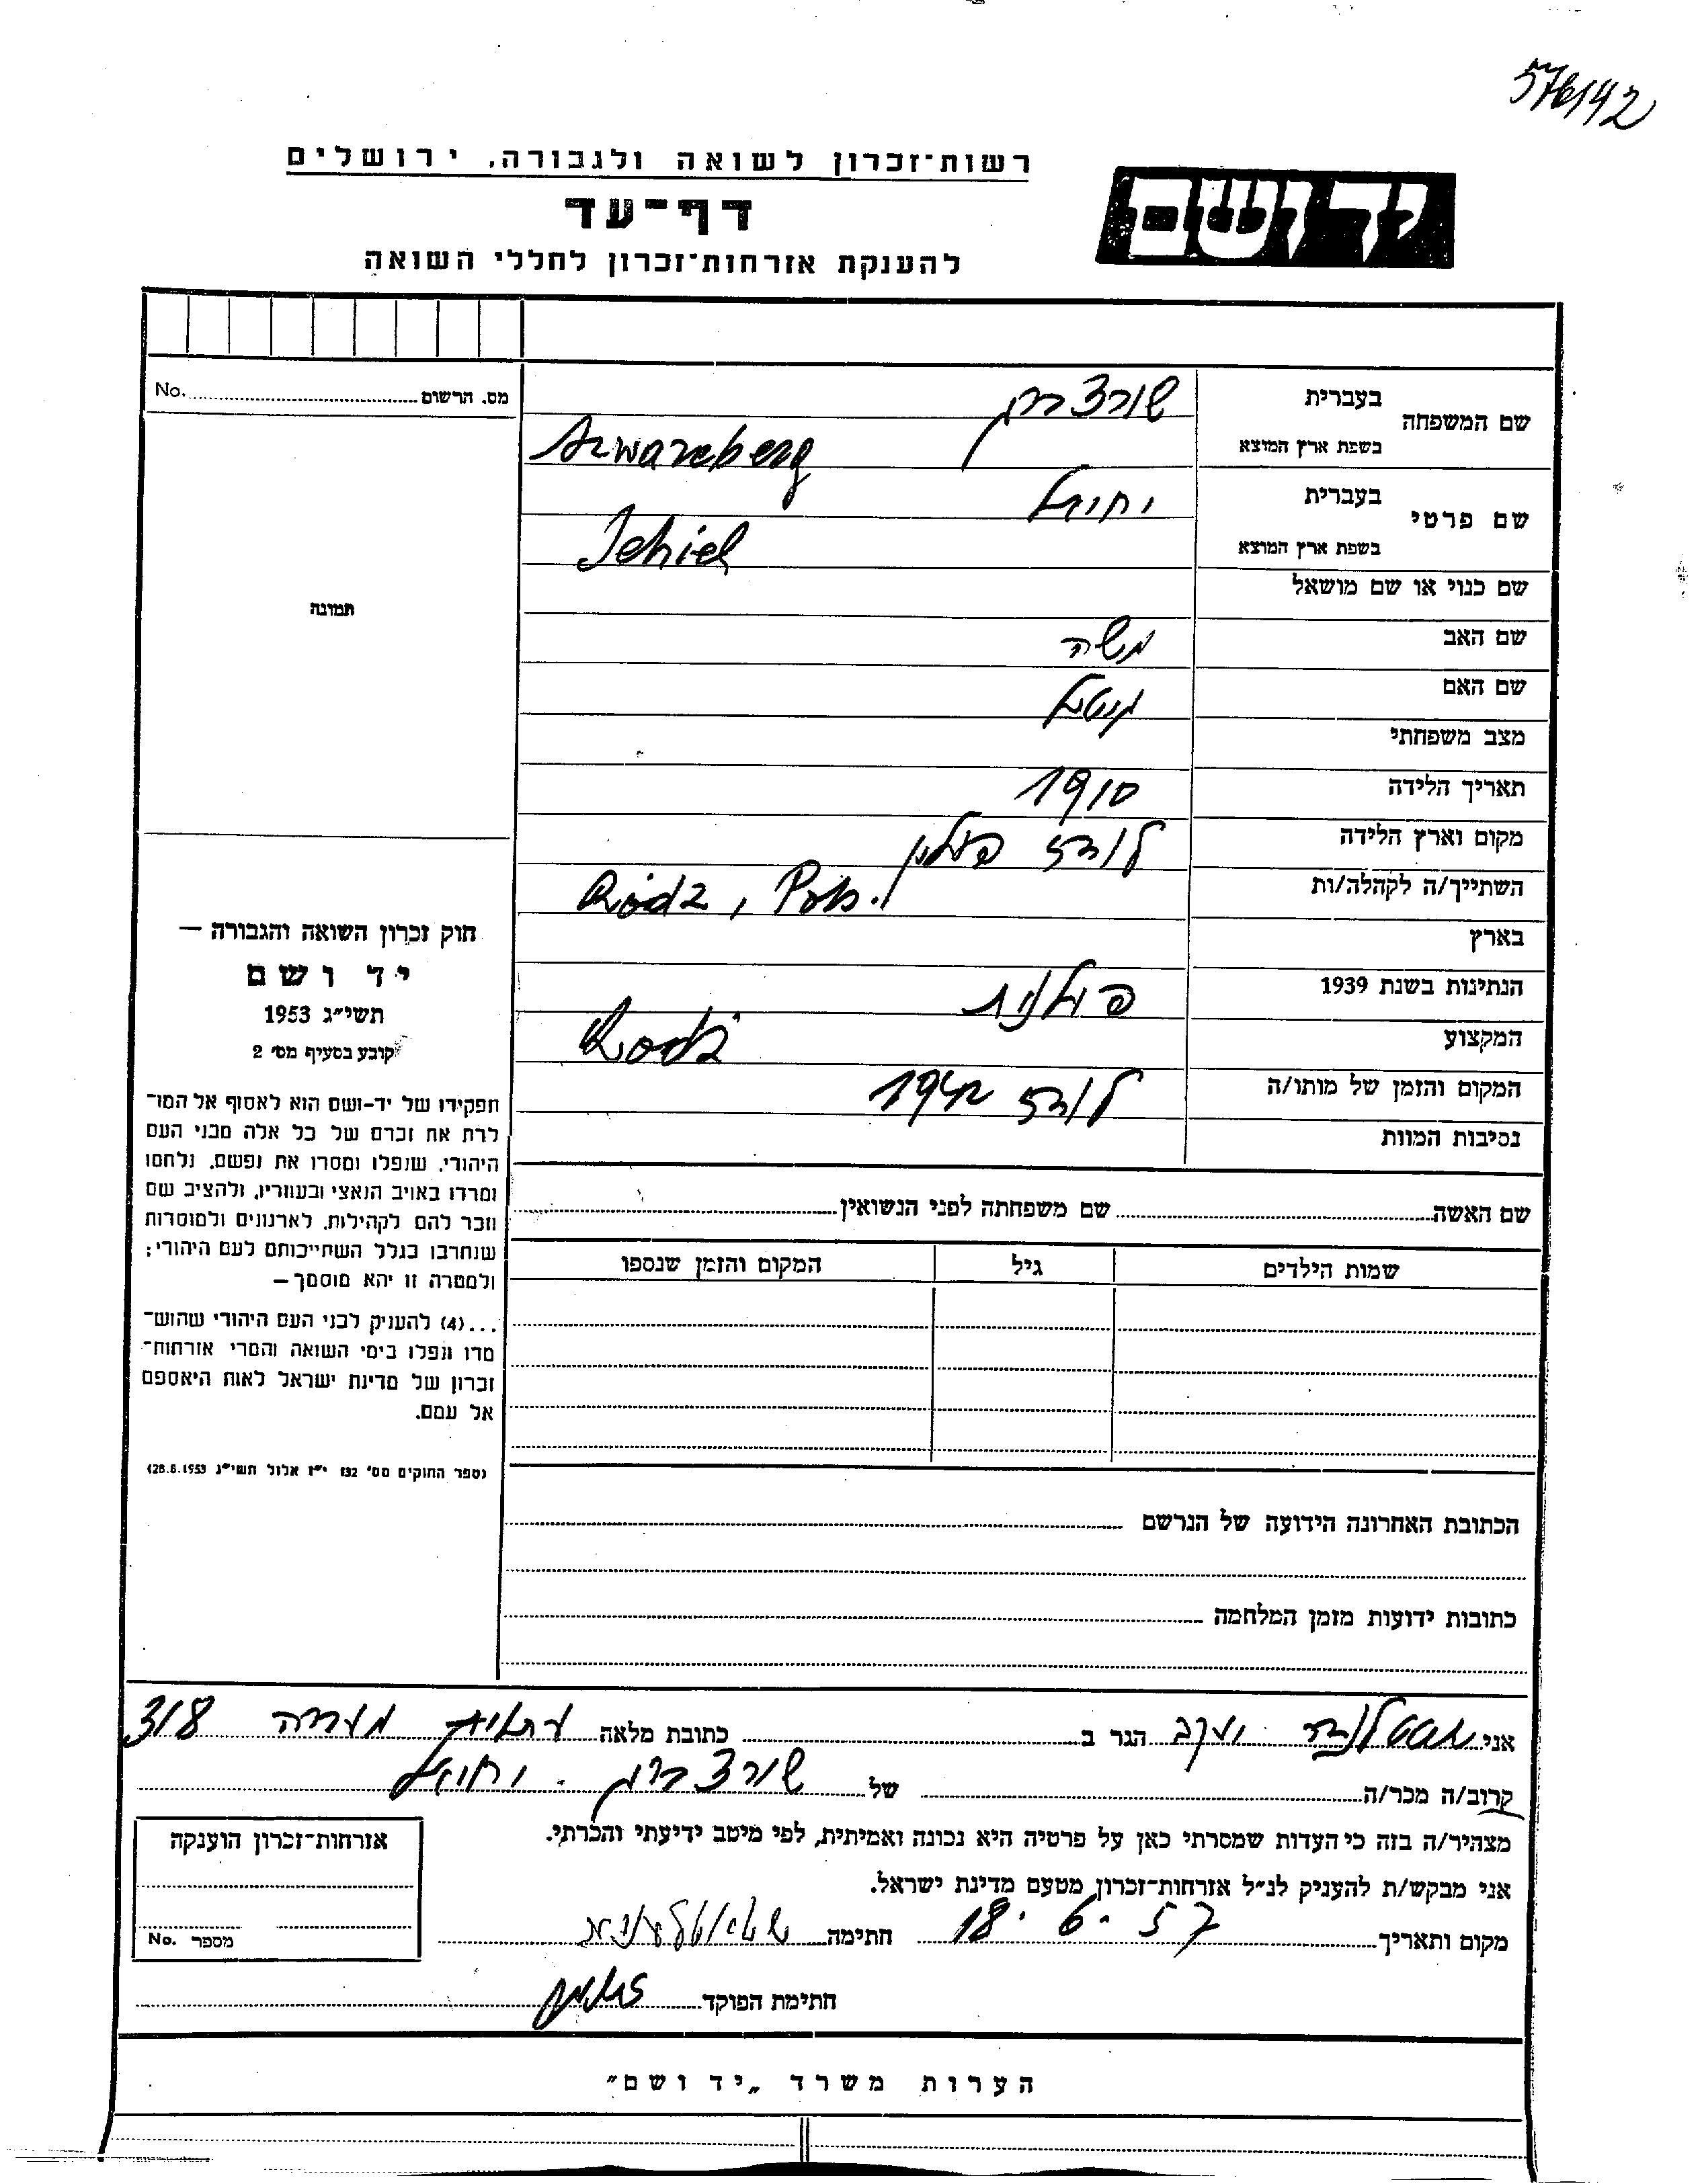 576142
רשות־זכרון לשואה ולגבורה, ירושלים
יד ושם
דף־עד
להענקת אזרחות־זכרון לחללי השואה
מס. הרשום No.
תמונה
שם המשפחה בעברית שורצברג
בשפת ארץ המוצא Szwarcberg
שם פרטי בעברית יחיאל
בשפת ארץ המוצא Jehiel
שם כנוי או שם מושאל
שם האב משה
שם האם
מצב משפחתי
תאריך הלידה 1910
מקום וארץ הלידה לודז פולין
השתייך/ה לקהלה/ות Łódź, Pol.
בארץ
הנתינות בשנת 1939 פולנית
המקצוע
Łodź
המקום והזמן של מותו/ה לודז 1942
נסיבות המוות
חוק זכרון השואה והגבורה —
יד ושם
תשי״ג 1953
קובע בסעיף מס׳ 2
תפקידו של יד-ושם הוא לאסוף אל המו־
לדת את זכרם של כל אלה מבני העם
היהודי, שנפלו ומסרו את נפשם, נלחמו
ומרדו באויב הנאצי ובעוזריו, ולהציב שם
וזכר להם לקהילות, לארגונים ולמוסדות
שנחרבו בגלל השתייכותם לעם היהודי;
ולמטרה זו יהא מוסמך—
...(4) להעניק לבני העם היהודי שהוש־
מדו ונפלו בימי השואה והמרי אזרחות־
זכרון של מדינת ישראל לאות היאספם
אל עמם.
(ספר החוקים מס׳ 132 י״ז אלול תשי״ג 28.8.1953)
שם האשה שם משפחתה לפני הנשואין
שמות הילדים גיל המקום והזמן שנספו
הכתובת האחרונה הידועה של הנרשם
כתובות ידועות מזמן המלחמה
אני יעקב הגר ב כתובת מלאה 318
קרוב/ה מכר/ה של שורצברג יחיאל
מצהיר/ה בזה כי העדות שמסרתי כאן על פרטיה היא נכונה ואמיתית, לפי מיטב ידיעתי והכרתי.
אני מבקש/ת להעניק לנ״ל אזרחות־זכרון מטעם מדינת ישראל.
מקום ותאריך 18.6.57 חתימה
חתימת הפוקד
אזרחות־זכרון הוענקה
מספר No.
הערות משרד „יד ושם״